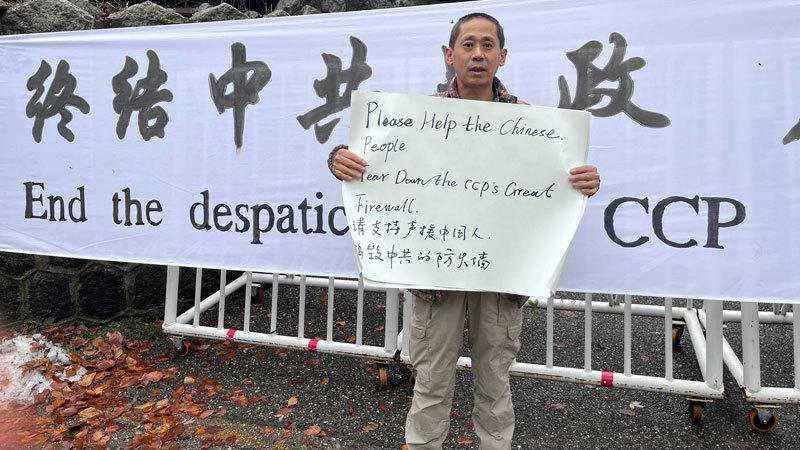 终结中共 政
End the despatic CCP
Please Help the Chinese.
People
Tear Down the CCP's Great
Firewall.
请支持声援中国人.
捣毁中共的防火墙.